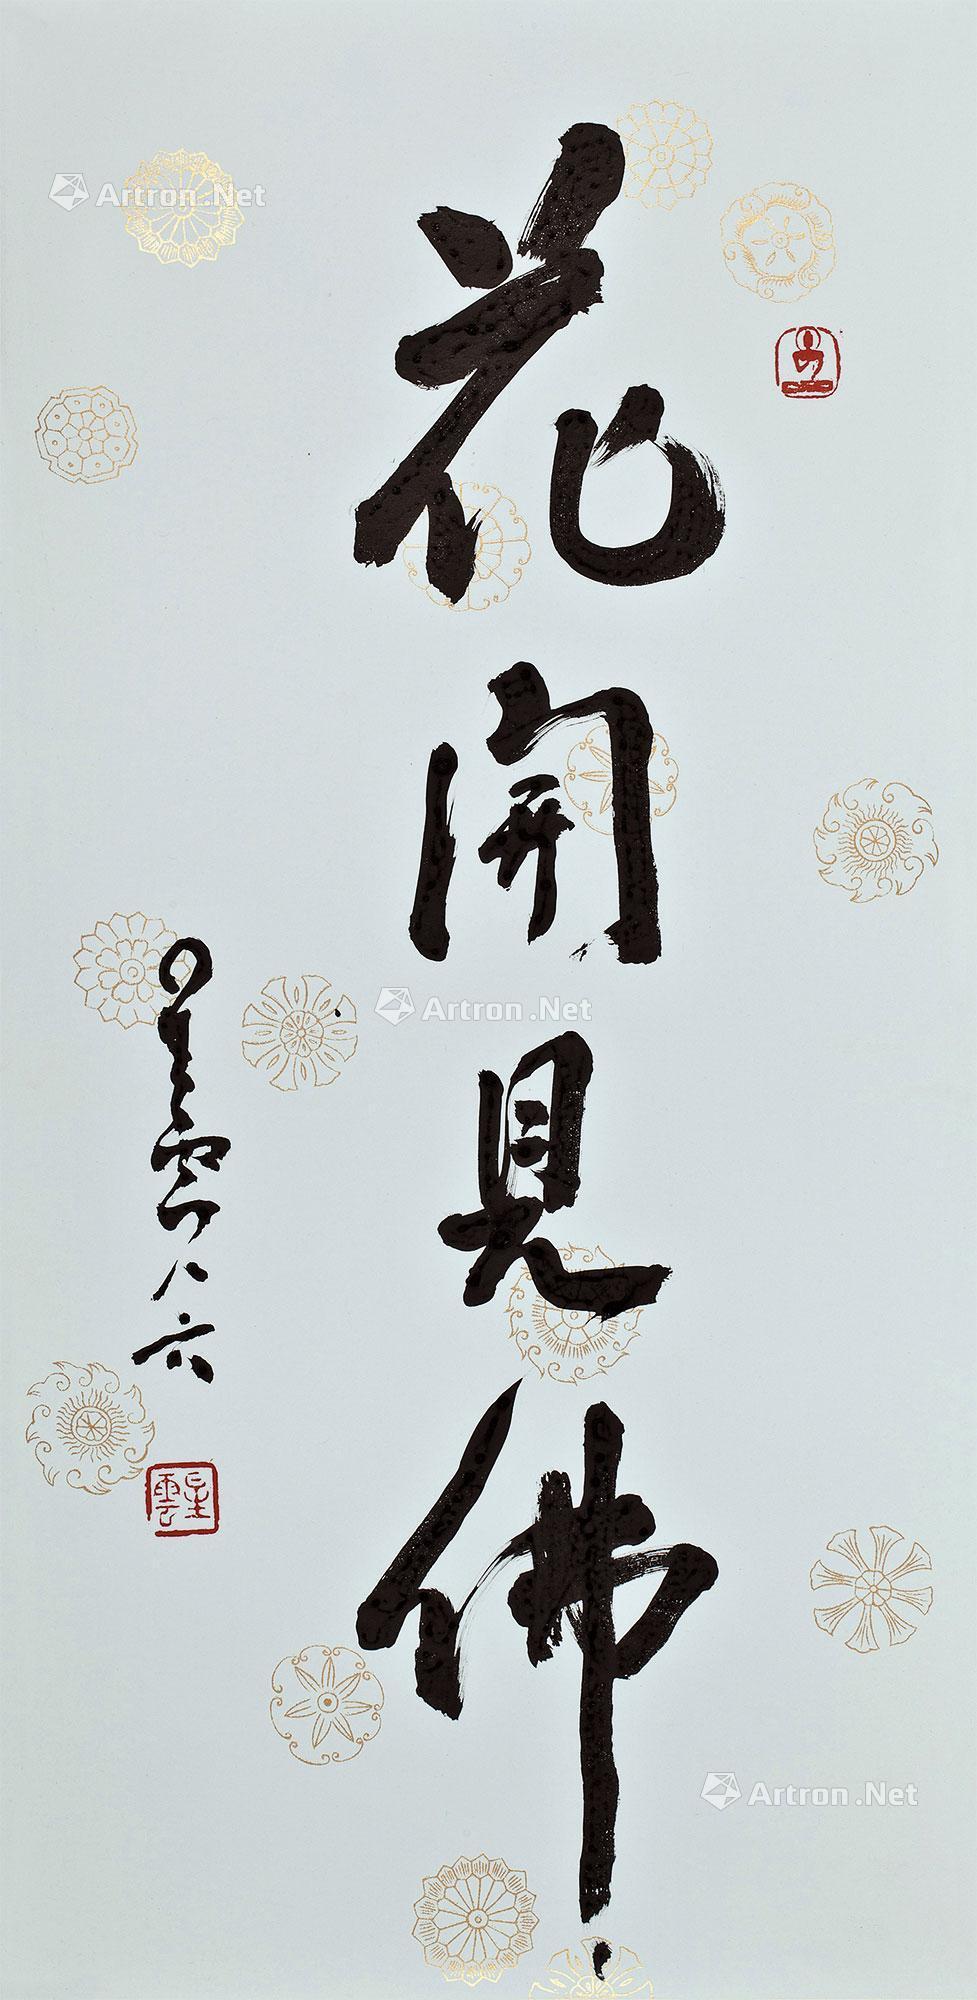 花開見佛
星雲八六
星雲
Artron.Net
Artron.Net
Artron.Net